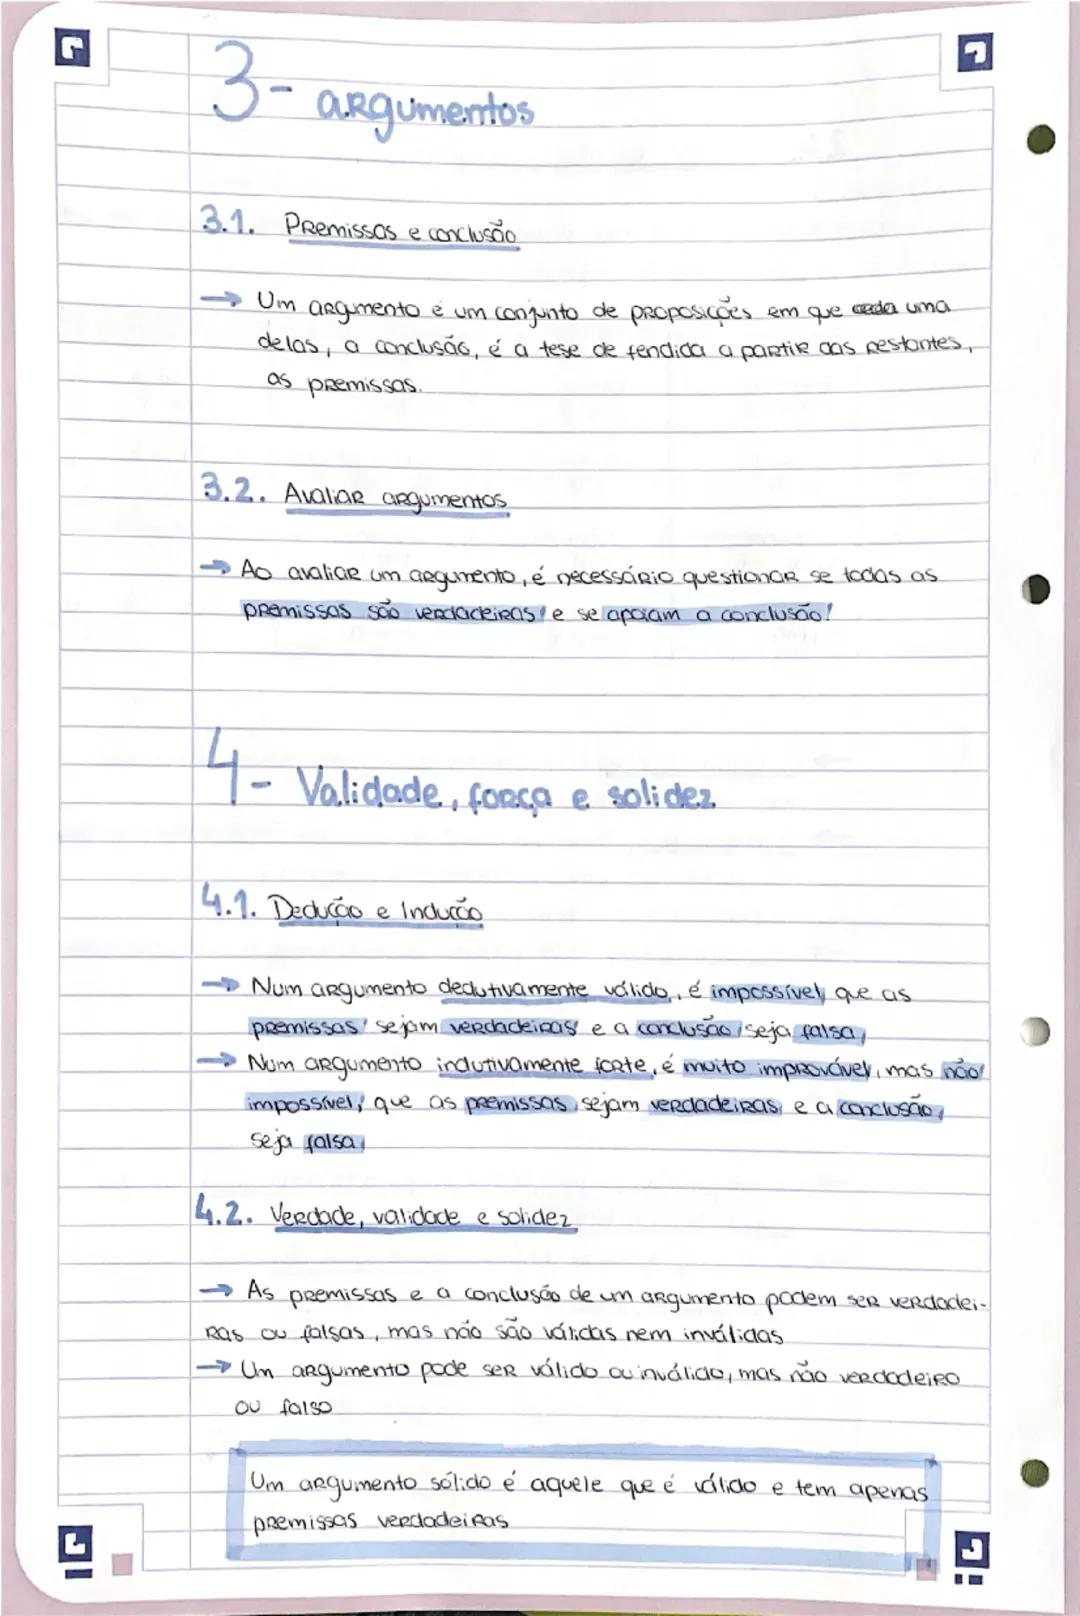 3- argumentos
3.1. Premissas e conclusão
→ Um argumento é um conjunto de proposições em que uma
delas, a conclusão, é a tese defendida a partir das restantes,
as premissas.
3.2. Avaliar argumentos
→ Ao avaliar um argumento, é necessário questionar se todas as
premissas são verdadeiras e se apoiam a conclusão.
4- Validade, força e solidez
4.1. Dedução e Indução
→ Num argumento dedutivamente válido, é impossível que as
premissas sejam verdadeiras e a conclusão seja falsa
→ Num argumento indutivamente forte, é muito improvável, mas não
impossível, que as premissas sejam verdadeiras e a conclusão
seja falsa
4.2. Verdade, validade e solidez
→ As premissas e a conclusão de um argumento podem ser verdadei-
ras ou falsas, mas não são válidas nem inválidas
→ Um argumento pode ser válido ou inválido, mas não verdadeiro
ou falso
Um argumento sólido é aquele que é válido e tem apenas
premissas verdadeiras